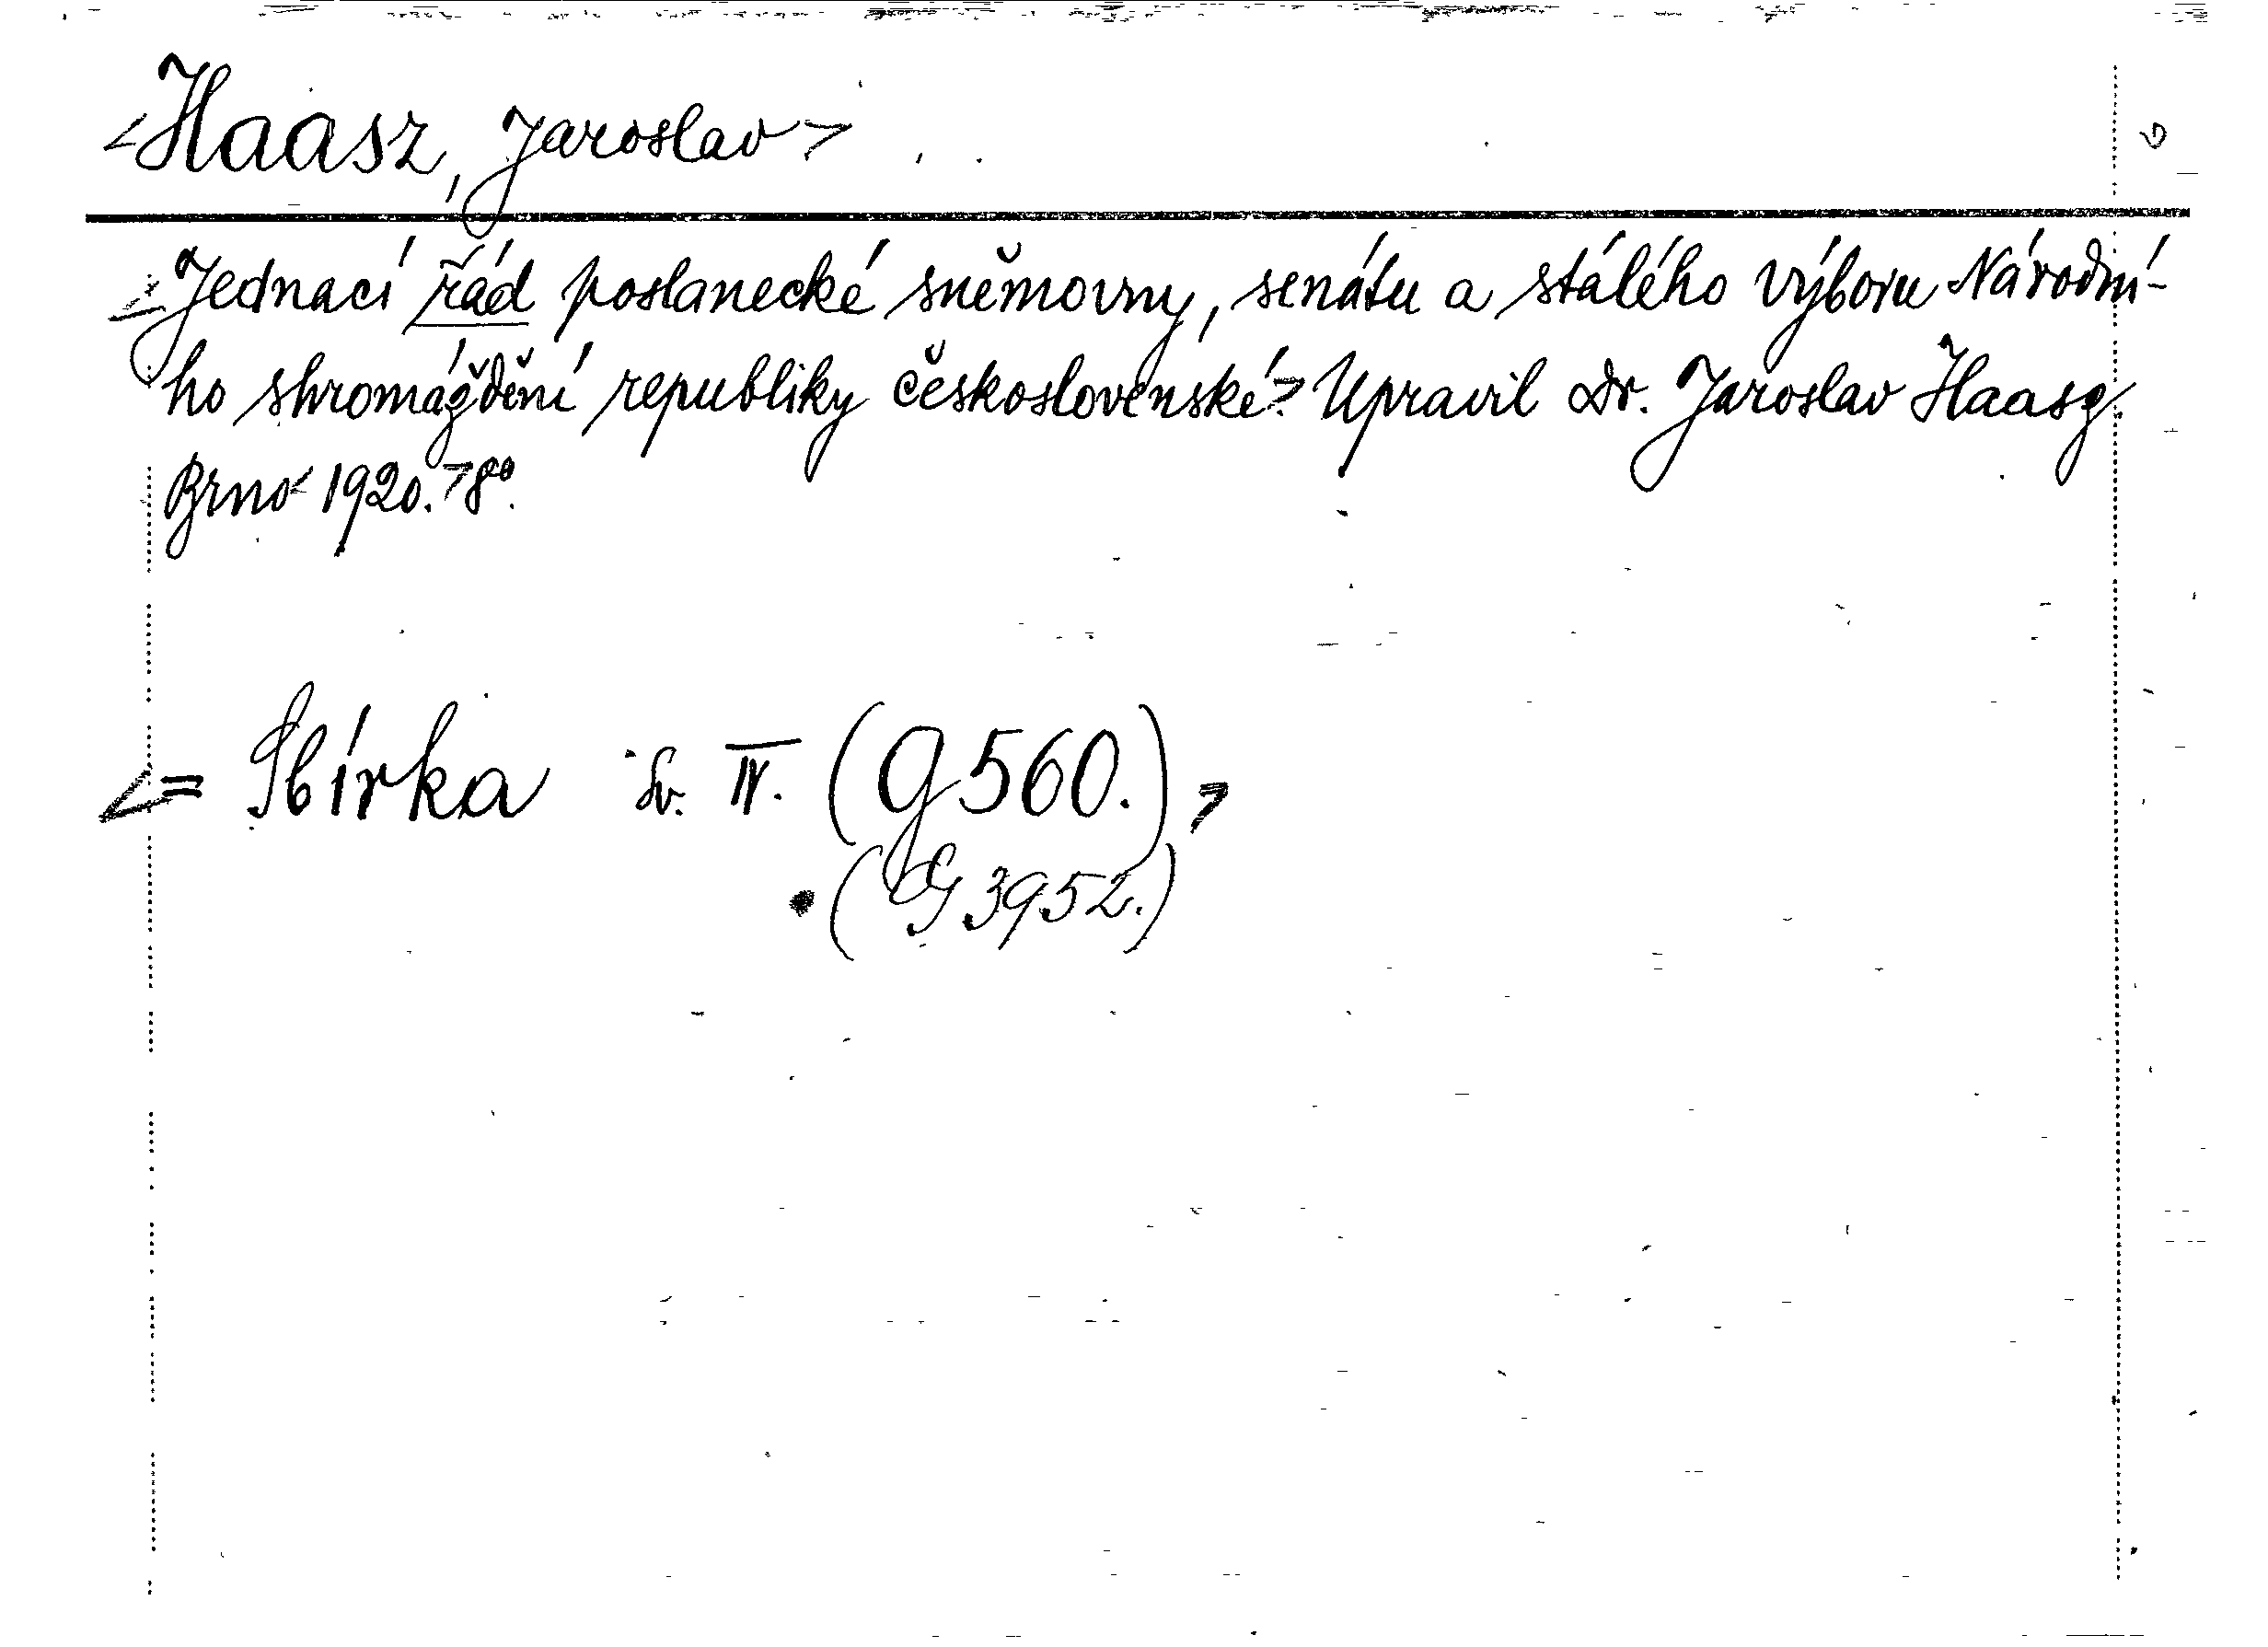 <Haasz, Jaroslav>
<Jednací řád poslanecké sněmovny, senátu a stálého výboru Národní-
ho shromáždění republiky československé.> Upravil Dr. Jaroslav Haasz.
Brno < 1920. > 8°.
<= Sbírka sv. IV. (G 560.)>
(G 3952.)